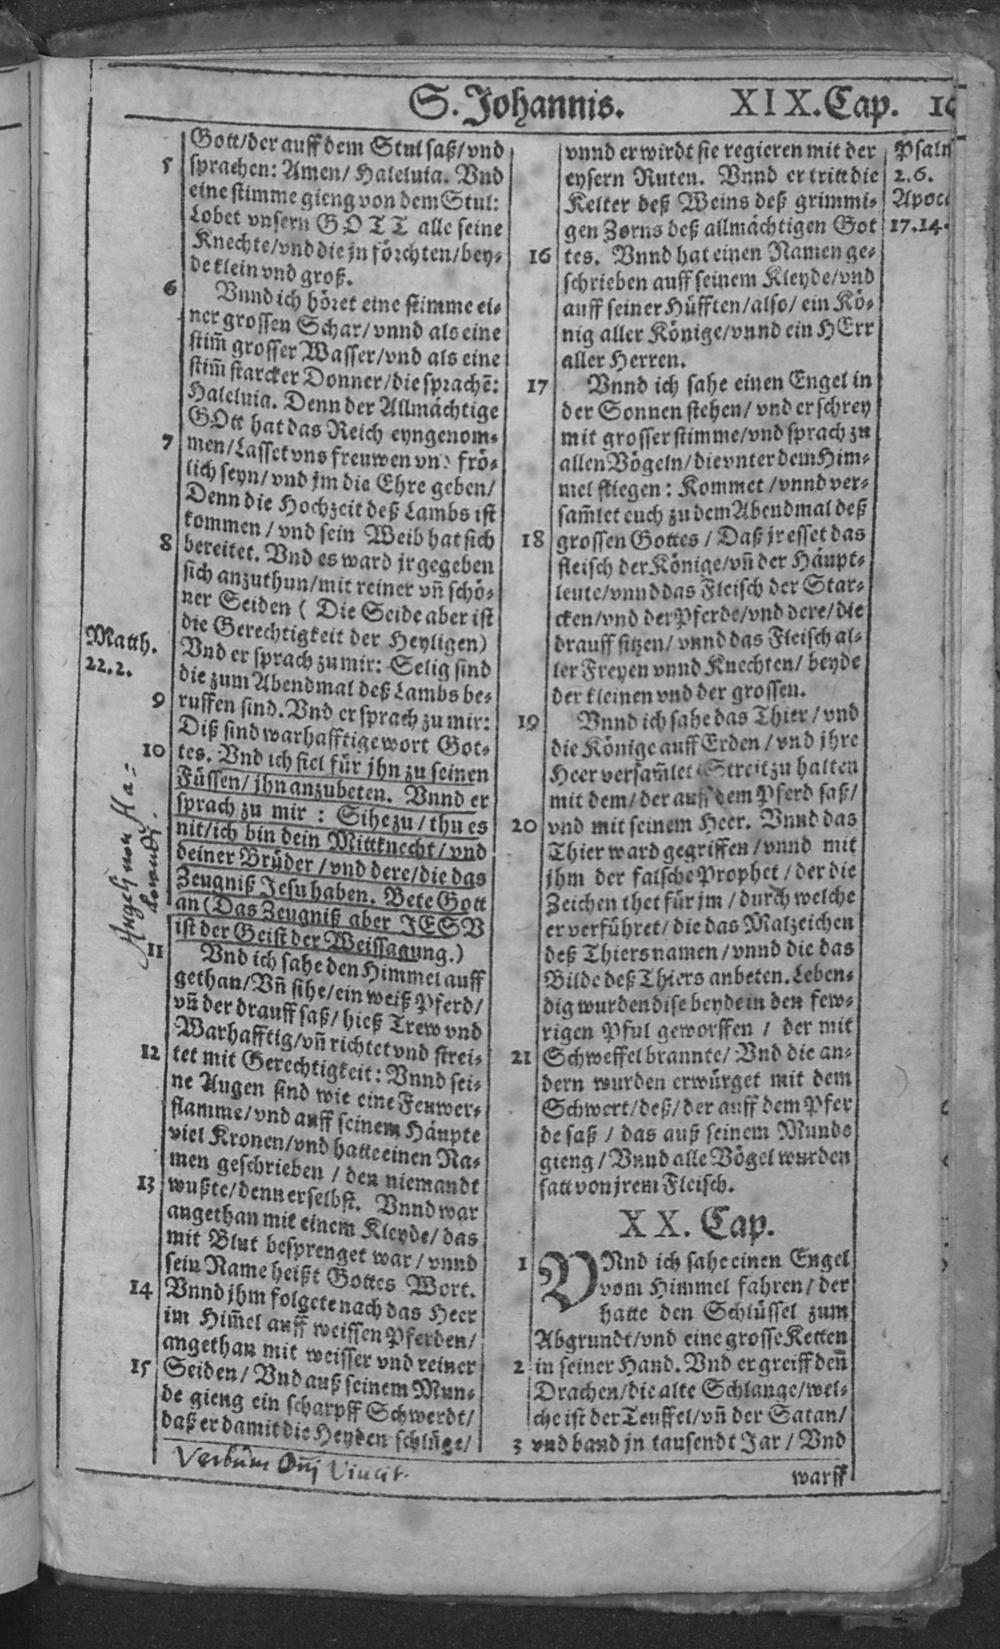 S. Johannis. XIX. Cap.
Gott/der auff dem Stul saß/vnd
5 sprachen: Amen/ Haleluia. Vnd
eine stimme gieng von dem Stul:
Lobet vnsern GOTT alle seine
Knechte/vnd die jn förchten/bey-
de klein vnd groß.
6 Vnnd ich höret eine stimme ei-
ner grossen Schar/vnnd als eine
stim̃ grosser Wasser/vnd als eine
stim̃ starcker Donner/die sprachẽ:
Haleluia. Denn der Allmächtige
GOtt hat das Reich eyngenom-
7 men/Lasset vns freuwen vnd frö-
lich seyn/vnd jm die Ehre geben/
Denn die Hochzeit deß Lambs ist
kommen/vnd sein Weib hat sich
8 bereitet. Vnd es ward jr gegeben
sich anzuthun/mit reiner vñ schö-
ner Seiden ( Die Seide aber ist
die Gerechtigkeit der Heyligen)
Matth.
22.2.
Vnd er sprach zu mir: Selig sind
die zum Abendmal deß Lambs be-
9 ruffen sind. Vnd er sprach zu mir:
Diß sind warhafftige wort Got-
10 tes. Vnd ich fiel für jhn zu seinen
Füssen/jhn anzubeten. Vnnd er
sprach zu mir : Sihe zu/thu es
nit/ich bin dein Mittknecht/vnd
deiner Brüder/vnd dere/die das
Zeugniß Jesu haben. Bete Gott
an (Das Zeugniß aber JESV
ist der Geist der Weissagung.)
11 Vnd ich sahe den Himmel auff
gethan/Vñ sihe/ein weiß Pferd/
vñ der drauff saß/hieß Trew vnd
Warhafftig/vñ richtet vnd strei-
12 tet mit Gerechtigkeit: Vnnd sei-
ne Augen sind wie eine Feuwer-
flamme/vnd auff seinem Häupte
viel Kronen/vnd hatte einen Na-
men geschrieben/den niemandt
13 wußte/denn er selbst. Vnnd war
angethan mit einem Kleyde/das
mit Blut besprenget war/vnnd
sein Name heißt Gottes Wort.
14 Vnnd jhm folgete nach das Heer
im Him̃el auff weissen Pferden/
angethan mit weisser vnd reiner
15 Seiden/Vnd auß seinem Mun-
de gieng ein scharpff Schwerdt/
daß er damit die Heyden schlüge/
Verbum Dnj Vincit.
vnnd er wirdt sie regieren mit der
eysern Ruten. Vnnd er tritt die
Kelter deß Weins deß grimmi-
gen Zorns deß allmächtigen Got
Psalm
2.6.
Apoc
17.14.
16 tes. Vnnd hat einen Namen ge-
schrieben auff seinem Kleyde/vnd
auff seiner Hüfften/also/ein Kö-
nig aller Könige/vnnd ein HErr
aller Herren.
17 Vnnd ich sahe einen Engel in
der Sonnen stehen/vnd er schrey
mit grosser stimme/vnd sprach zu
allen Vögeln/die vnter dem Him-
mel fliegen: Kommet/vnnd ver-
sam̃let euch zu dem Abendmal deß
18 grossen Gottes/Daß jr esset das
fleisch der Könige/vñ der Häupt-
leute/vnnd das Fleisch der Star-
cken/vnd der Pferde/vnd dere/die
drauff sitzen/vnnd das Fleisch al-
ler Freyen vnnd Knechten/beyde
der kleinen vnd der grossen.
19 Vnnd ich sahe das Thier/vnd
die Könige auff Erden/vnd jhre
Heer versam̃let Streit zu halten
mit dem/der auff dem Pferd saß/
20 vnd mit seinem Heer. Vnnd das
Thier ward gegriffen/vnnd mit
jhm der falsche Prophet/der die
Zeichen thet für jm/durch welche
er verführet/die das Malzeichen
deß Thiers namen/vnnd die das
Bilde deß Thiers anbeten. Leben-
dig wurden dise beyde in den few-
rigen Pful geworffen/der mit
21 Schweffel brannte/Vnd die an-
dern wurden erwürget mit dem
Schwert/deß/der auff dem Pfer
de saß/das auß seinem Munde
gieng/Vnnd alle Vögel wurden
satt von jrem Fleisch.
XX. Cap.
1 VNnd ich sahe einen Engel
vom Himmel fahren/der
hatte den Schlüssel zum
Abgrundt/vnd eine grosse Ketten
2 in seiner Hand. Vnd er greiff den̄
Drachen/die alte Schlange/wel-
che ist der Teuffel/vñ der Satan/
3 vnd band jn tausendt Jar/Vnd
warff